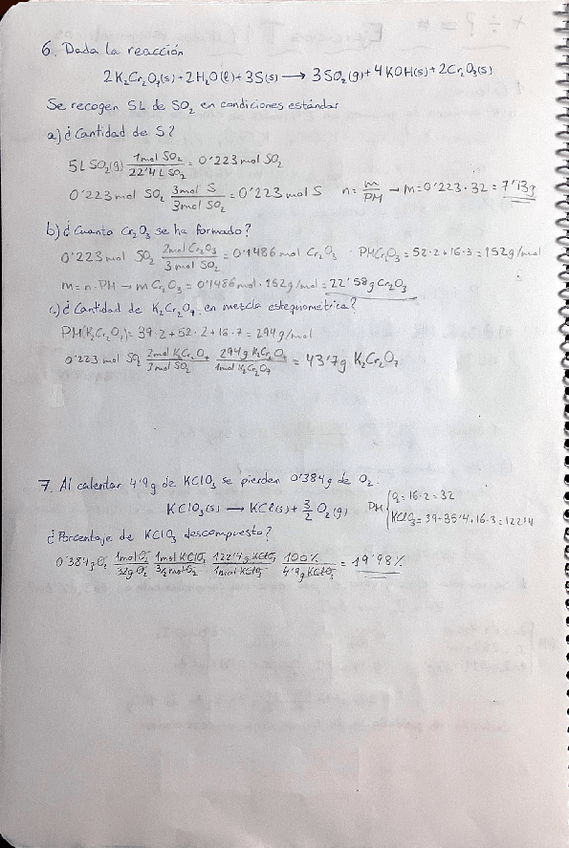 6. Dada la reacción
2K₂Cr₂O₇(s)+2H₂O(l)+3S(s) → 3SO₂(g)+4KOH(s)+2Cr₂O₃(s)
Se recogen 5L de SO₂ en condiciones estándar
a) ¿Cantidad de S?
5L SO₂(g) 1mol SO₂/22'4L SO₂ = 0'223 mol SO₂
0'223 mol SO₂ 3mol S/3mol SO₂ = 0'223 mol S n = m/PM → m=0'223·32 = 7'13g
b) ¿Cuanto Cr₂O₃ se ha formado?
0'223 mol SO₂ 2mol Cr₂O₃/3 mol SO₂ = 0'1486 mol Cr₂O₃ · PMCr₂O₃ = 52·2+16·3 = 152g/mol
m = n·PM → mCr₂O₃ = 0'1486mol·152g/mol = 22'58g Cr₂O₃
c) ¿Cantidad de K₂Cr₂O₇ en mezcla estequiométrica?
PM(K₂Cr₂O₇) = 39·2+52·2+16·7 = 294g/mol
0'223 mol SO₂ 2mol K₂Cr₂O₇/3mol SO₂ 294g K₂Cr₂O₇/1mol K₂Cr₂O₇ = 43'7g K₂Cr₂O₇
7. Al calentar 4'9g de KClO₃ se pierden 0'384g de O₂.
KClO₃(s) → KCl(s) + 3/2 O₂(g) PM { O₂ = 16·2 = 32
KClO₃ = 39+35'4+16·3 = 122'4
¿Porcentaje de KClO₃ descompuesto?
0'384gO₂ 1molO₂/32gO₂ 1mol KClO₃/3/2molO₂ 122'4g KClO₃/1mol KClO₃ 100%/4'9g KClO₃ = 19'98%